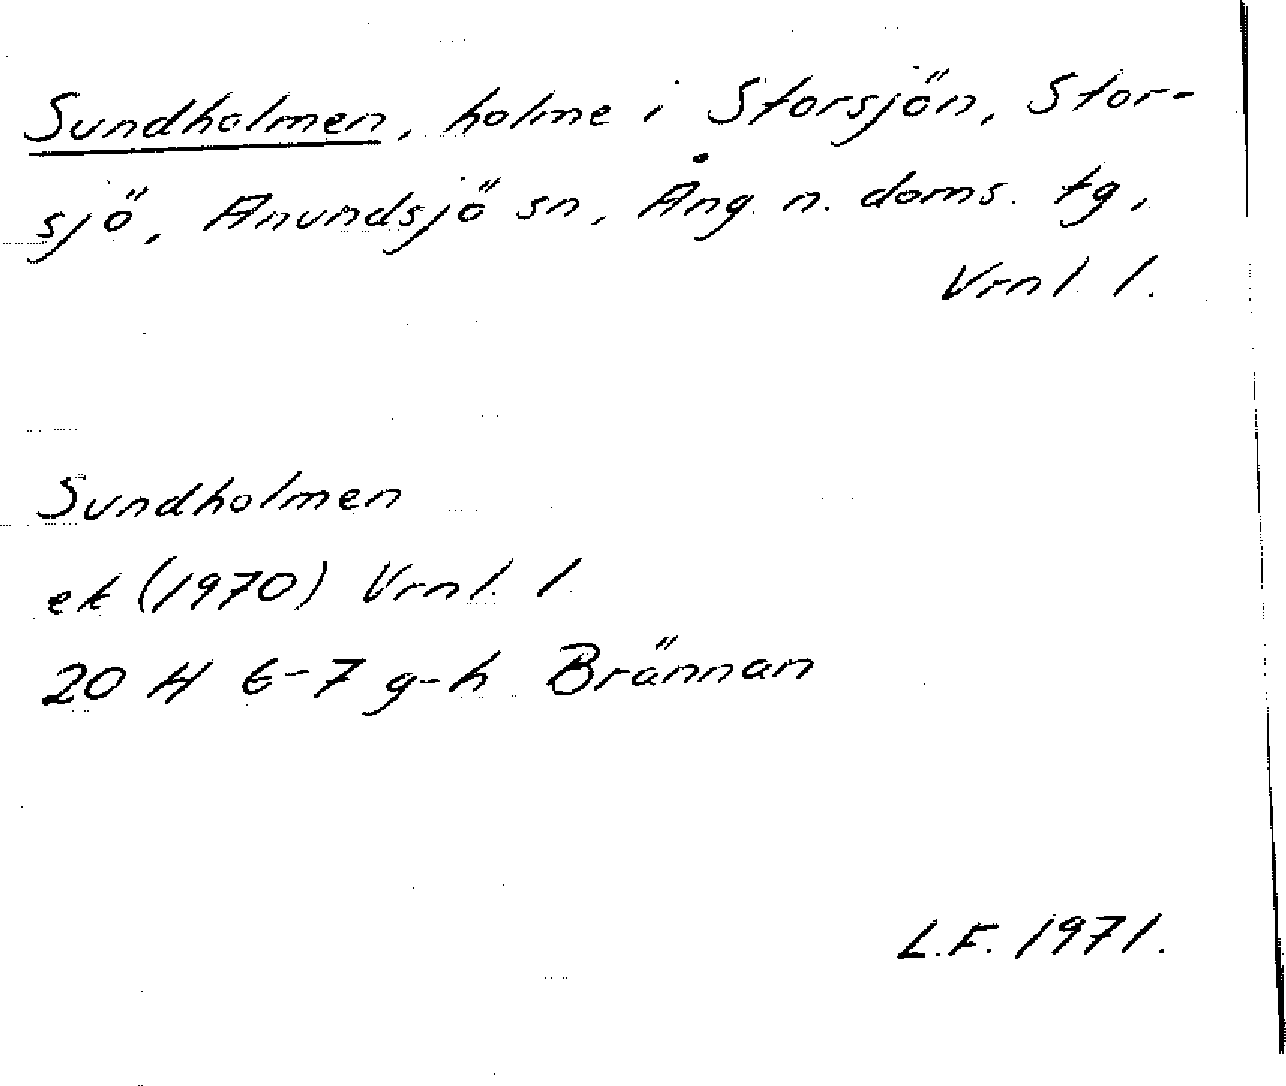 Sundholmen, holme i Storsjön, Stor-
sjö, Anundsjö sn, Ång. n. doms. tg,
Vrnl. l.
Sundholmen
ek (1970) Vrnl. l
20 H 6-7 g-h Brännan
L.F. 1971.